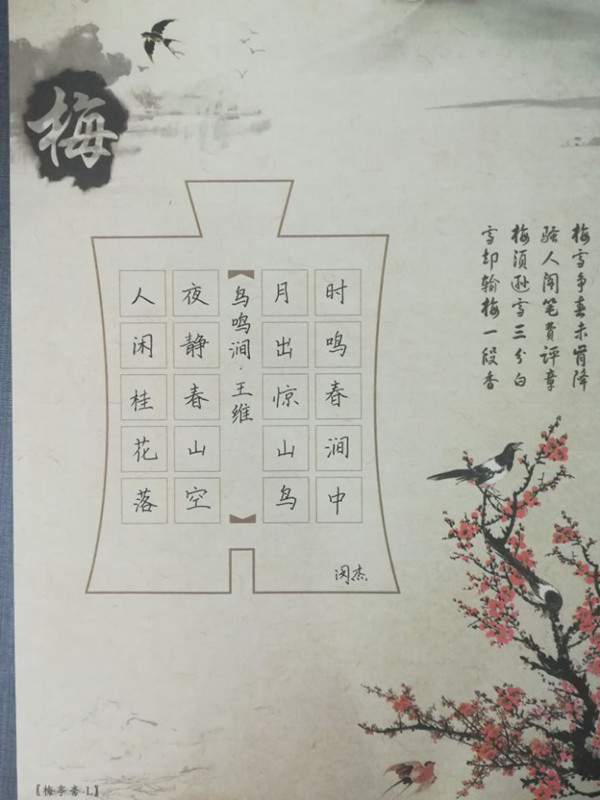 梅
人闲桂花落
夜静春山空
鸟鸣涧·王维
月出惊山鸟
时鸣春涧中
闵杰
梅雪争春未肯降
骚人阁笔费评章
梅须逊雪三分白
雪却输梅一段香